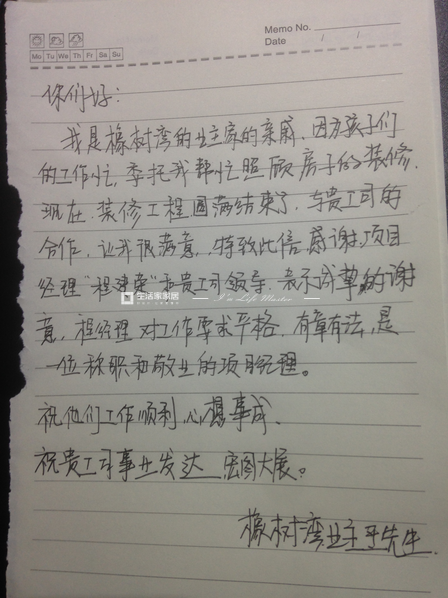 Memo No.
Date / /
Mo Tu We Th Fr Sa Su
你们好：
我是橡树湾的业主家的亲戚，因为孩子们
的工作忙，委托我帮忙照顾房子的装修，
现在，装修工程圆满结束了，与贵公司的
合作，让我很满意，特致此信，感谢，项目
经理“程建荣”和贵公司领导，表示诚挚的谢
意，程经理对工作要求严格，有章有法，是
一位称职和敬业的项目经理。
祝他们工作顺利，心想事成，
祝贵公司事业发达 宏图大展。
橡树湾业主王先生
生活家家居
I'm Life Master